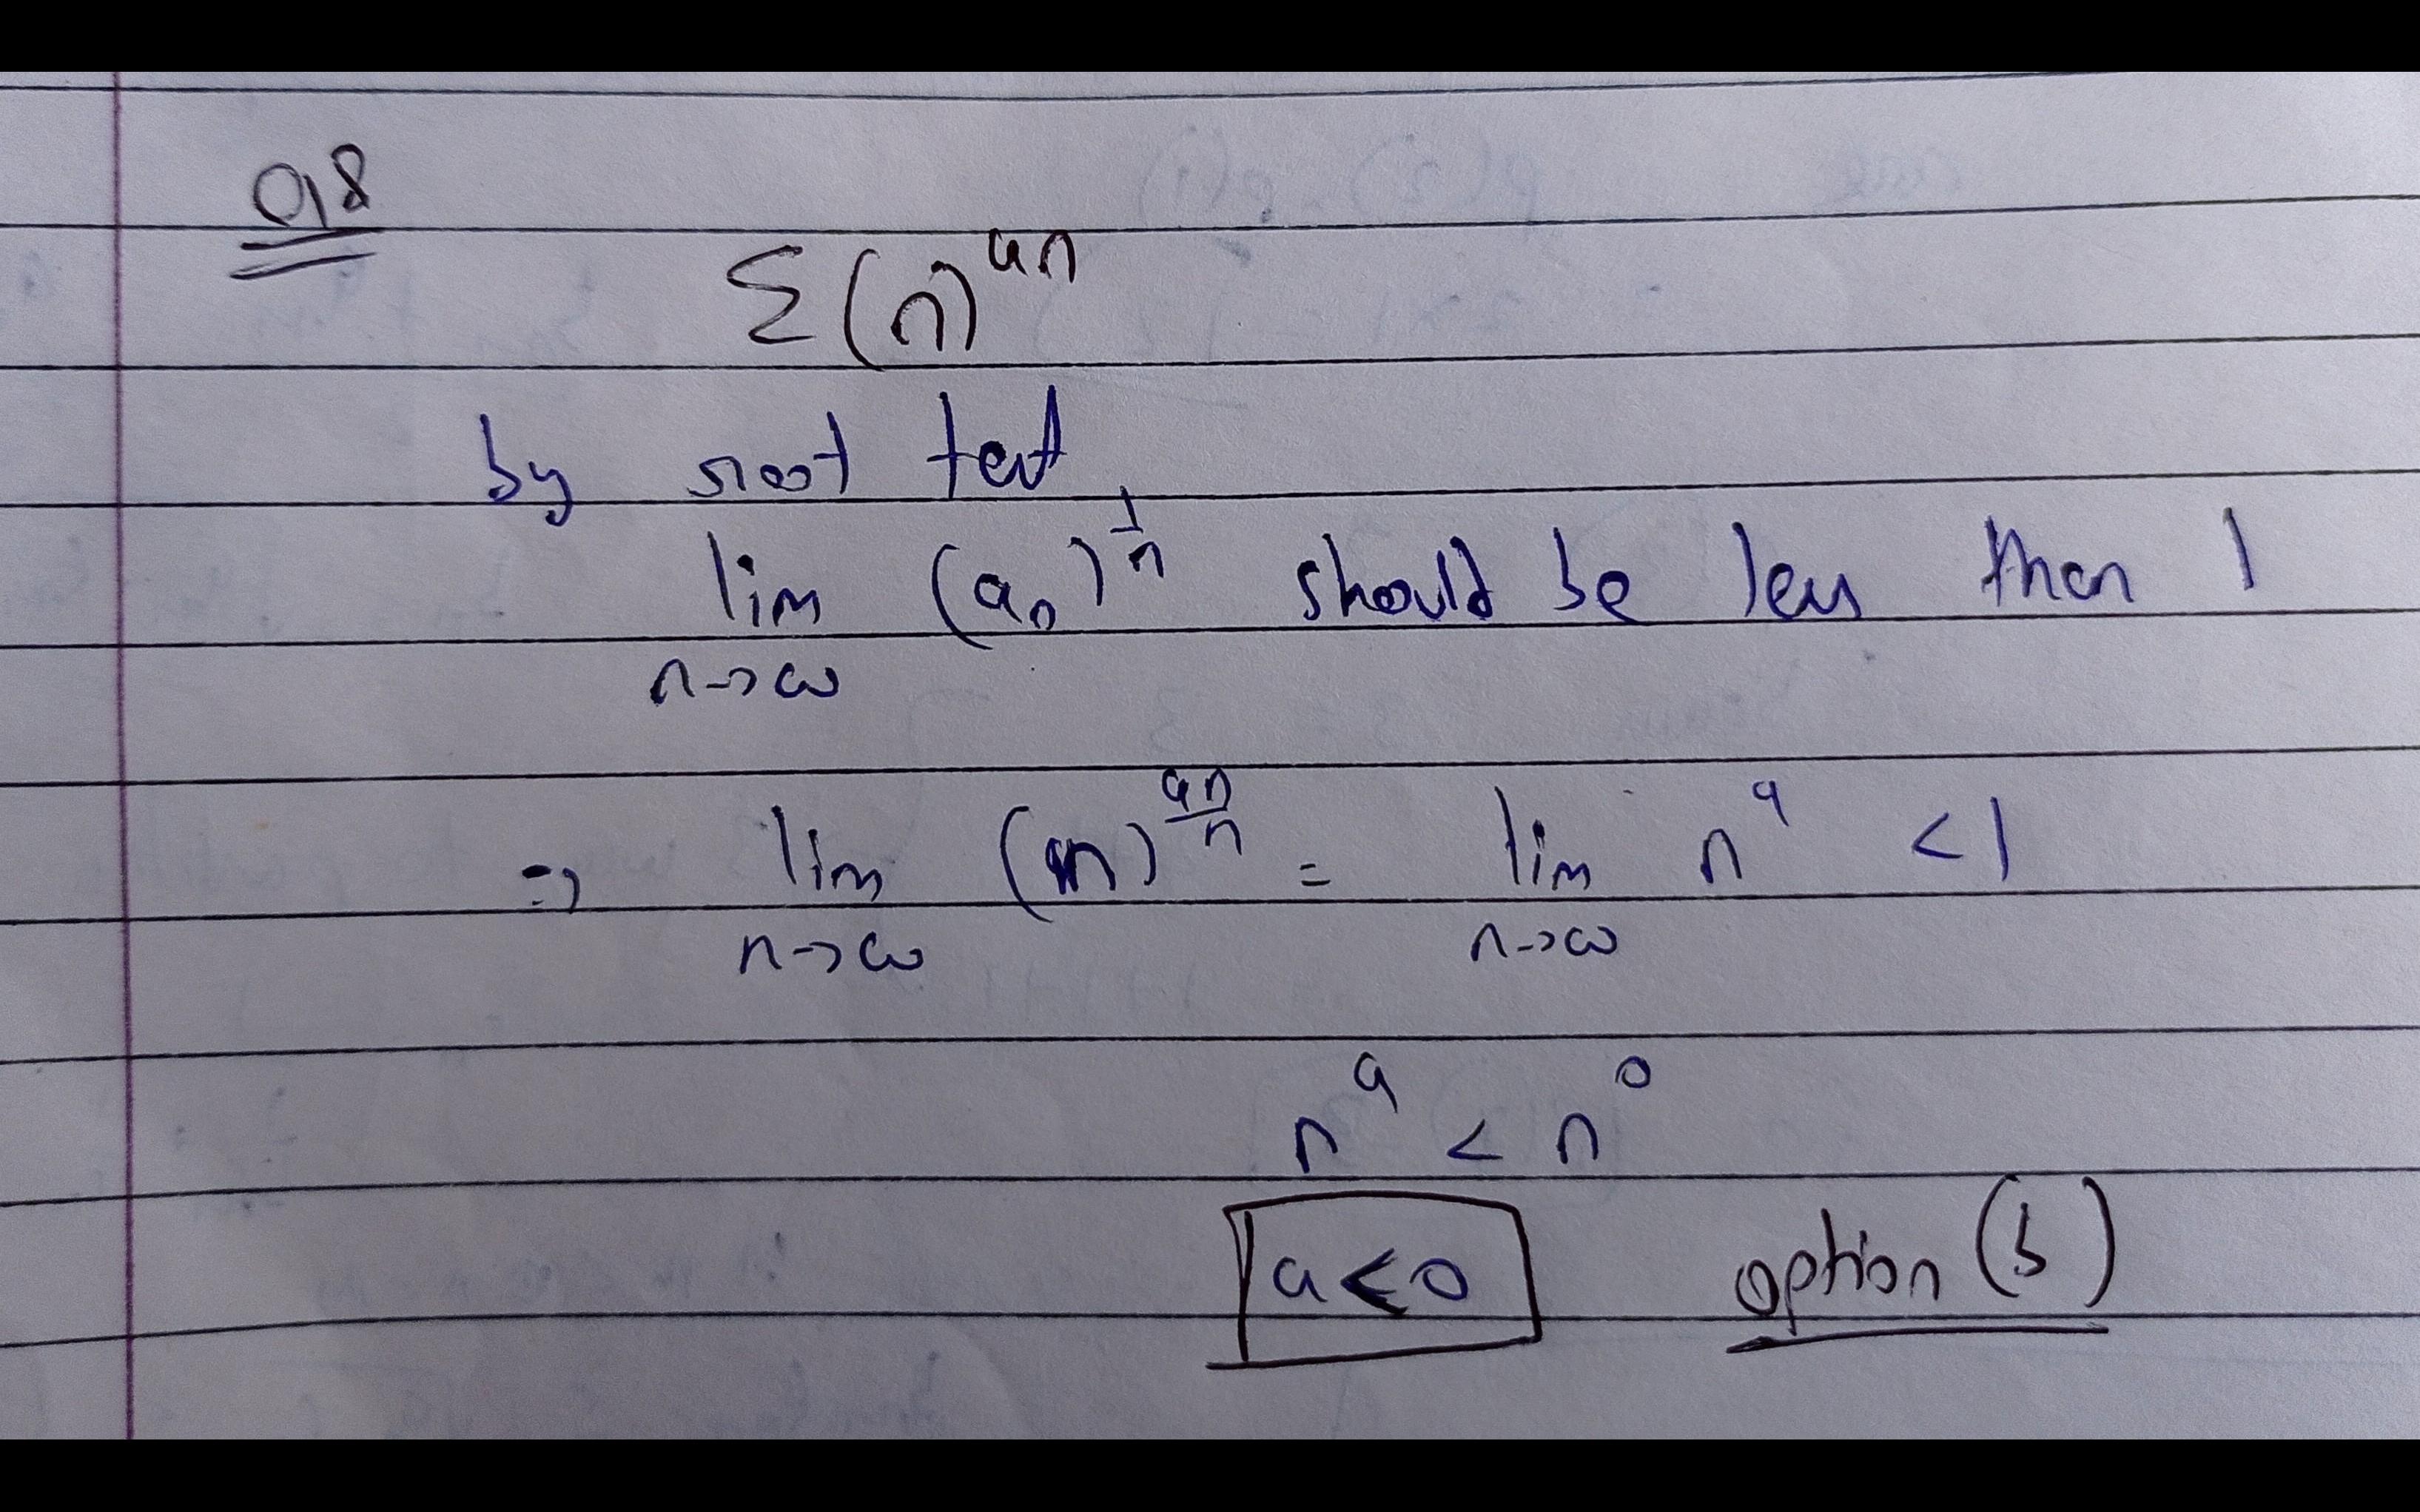 Q8
Σ(n)^{an}
by root test,
lim (a_n)^{1/n} should be less then 1
n→∞
⇒ lim (n)^{an/n} = lim n^a < 1
n→∞ n→∞
n^a < n^0
a < 0 option (b)